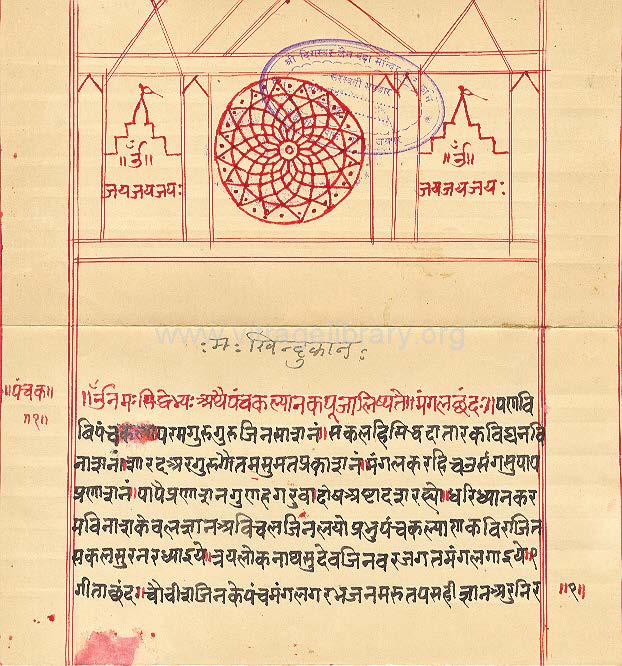 श्री दिगम्बर जैन बड़ा मन्दिर
सरस्वती भण्डार
॥ॐ॥
जयजयजयः
॥ॐ॥
जयजयजयः
www.vitragelibrary.org
॥पंचक॥
॥१॥
॥ॐनमःसिद्धेभ्यःअथैपंचकल्यानकपूजालिष्यते॥मंगलछंद॥पणवि
विपंचकल्यापरमगुरुगुरुजिनसाशनं॥सकलहिसिधदातारकविघनवि
नाशनं॥शारदअरगुरुगौतमसुमतप्रकाशनं॥मंगलकरहिचवसंगसुपाप
प्रणाशनं॥पापैप्रणाशनगुणहगरुवादोषअष्टादशरह्यो॥धरिध्यानकर
मविनाशकेवलज्ञानअविचलजिनलयोप्रभुपंचकल्याणकविराजित
सकलसुरनरध्याइये॥त्रयलोकनाथसुदेवजिनवरजगतमंगलगाइये॥१
गीताछंद॥चौवीशजिनकेपंचमंगलगरभजनमरुतपसहीज्ञानअरुनिर
॥१॥